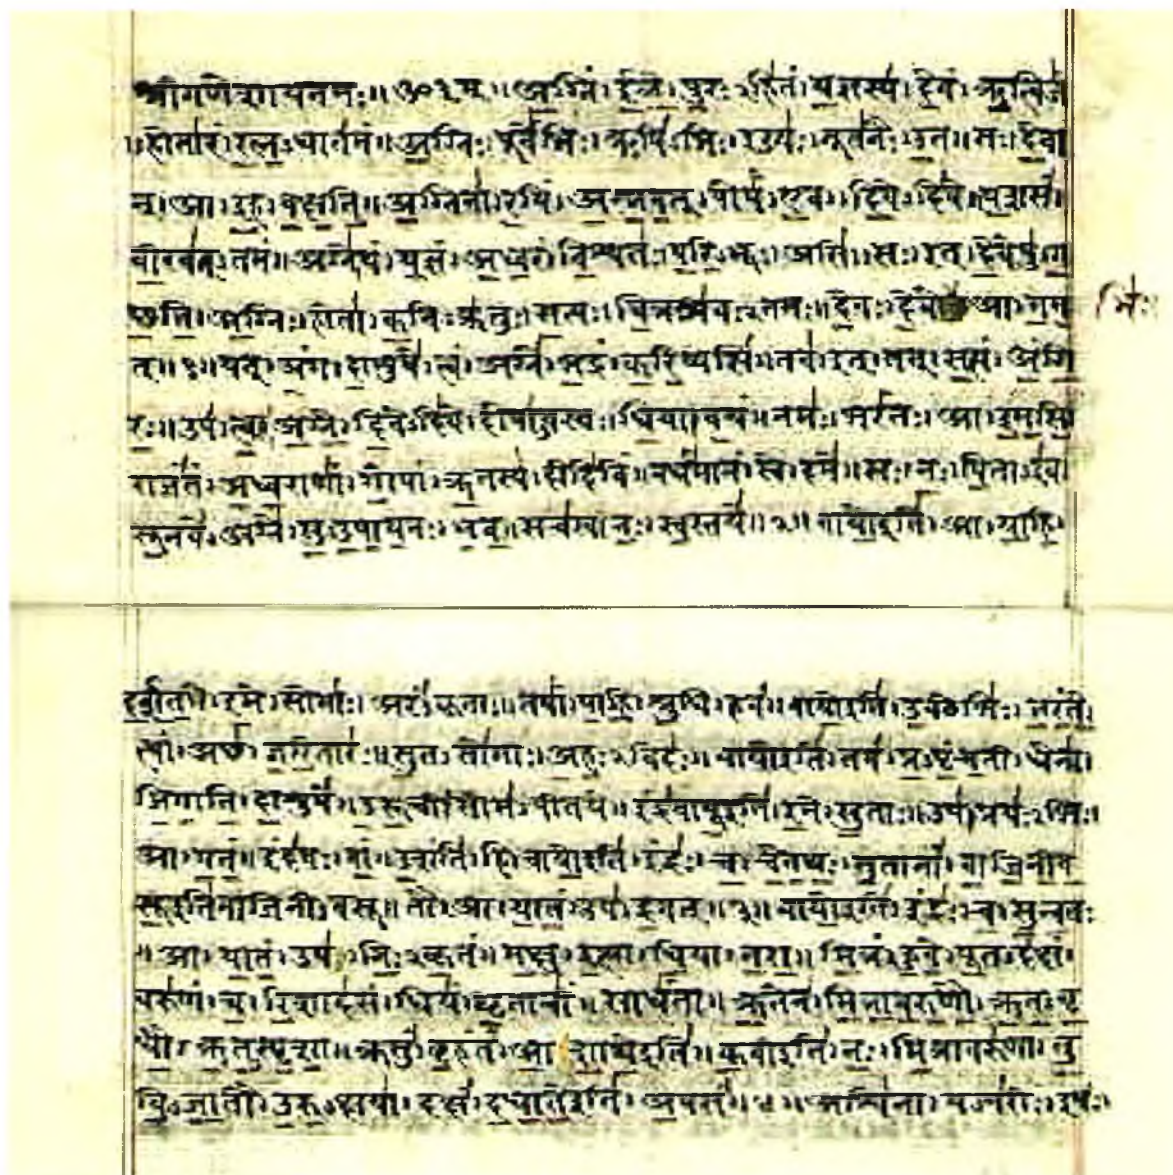 श्रीगणेशायनमः॥ॐ३म्॥अग्निं। ईळे। पुरः२हितं। यज्ञस्य। देवं। ऋत्विजं
॥होतारं। रत्न२धातमं॥ अग्निः। पूर्वेभिः। ऋषिभिः। ईड्यः। नूतनैः। उत॥ सः। देवा
न्। आ। इह। वक्षति॥ अग्निना। रयिं। अश्नवत्। पोषं। एव। दिवे२दिवे॥ यशसं।
वीरवत्२तमं॥ अग्ने। यं। यज्ञं। अध्वरं। विश्वतः। परि२भूः। असि॥ सः। इत्। देवेषु। ग
च्छति। अग्निः। होता। कवि२क्रतुः। सत्यः। चित्रश्रवः२तमः॥ देवः। देवे आ। गम
भिः
त्॥१॥ यत्। अंग। दाशुषे। त्वं। अग्ने। भद्रं। करिष्यसि॥ तव। इत्। तत्। सत्यं। अंगि
रः॥ उप। त्वा। अग्ने। दिवे२दिवे। दोषा२वस्तः। धिया। वयं॥ नमः। भरंतः। आ। इमसि
राजंतं। अध्वराणां। गोपां। ऋतस्य। दीदिविं॥ वर्धमानं। स्वे। दमे॥ सः। नः। पिता२इव
सूनवे। अग्ने। सु२उपायनः। भव॥ सचस्व। नः। स्वस्तये॥२॥ वायोइति। आ। याहि।
दर्शत। इमे। सोमाः। अरं२कृताः॥ तेषां। पाहि। श्रुधि। हवं॥ वायोइति। उक्थेभिः। जरंते।
त्वां। अच्छ। जरितारः॥ सुत२सोमाः। अहः२विदः॥ वायोइति। तव। प्र२पृंचती। धेना।
जिगाति। दाशुषे॥ उरूची। सोम२पीतये॥ इंद्रवायूइति। इमे। सुताः॥ उप। प्रयः२भिः॥
आ। गतं॥ इंदवः। वां। उशंति। हि॥ वायोइति। इंद्रः। च। चेतथः। सुतानां। वाजिनीव
सूइतिवाजिनी२वसू॥ तौ। आ। यातं। उप। द्रवत्॥३॥ वायोइति। इंद्रः। च। सुन्वतः
॥आ। यातं। उप। निः२कृतं॥ मक्षु। इत्था। धिया। नरा॥ मित्रं। हुवे। पूत२दक्षं।
वरुणं। च। रिशादसं॥ धियं। घृताचीं॥ साधंता॥ ऋतेन। मित्रावरुणौ। ऋत२वृ
धौ। ऋत२स्पृशा॥ क्रतुं। बृहंतं। आशाथेइति॥ कवीइति। नः। मित्रावरुणा। तु
वि२जातौ। उरु२क्षया। दक्षं। दधातेइति। अपसं॥४॥ अश्विना। यज्वरीः। इषः।